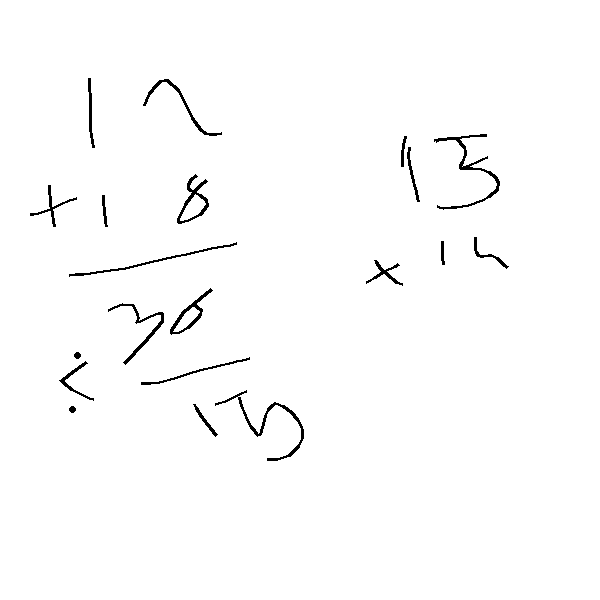 12
+18
30
÷ <
15
15
× 12